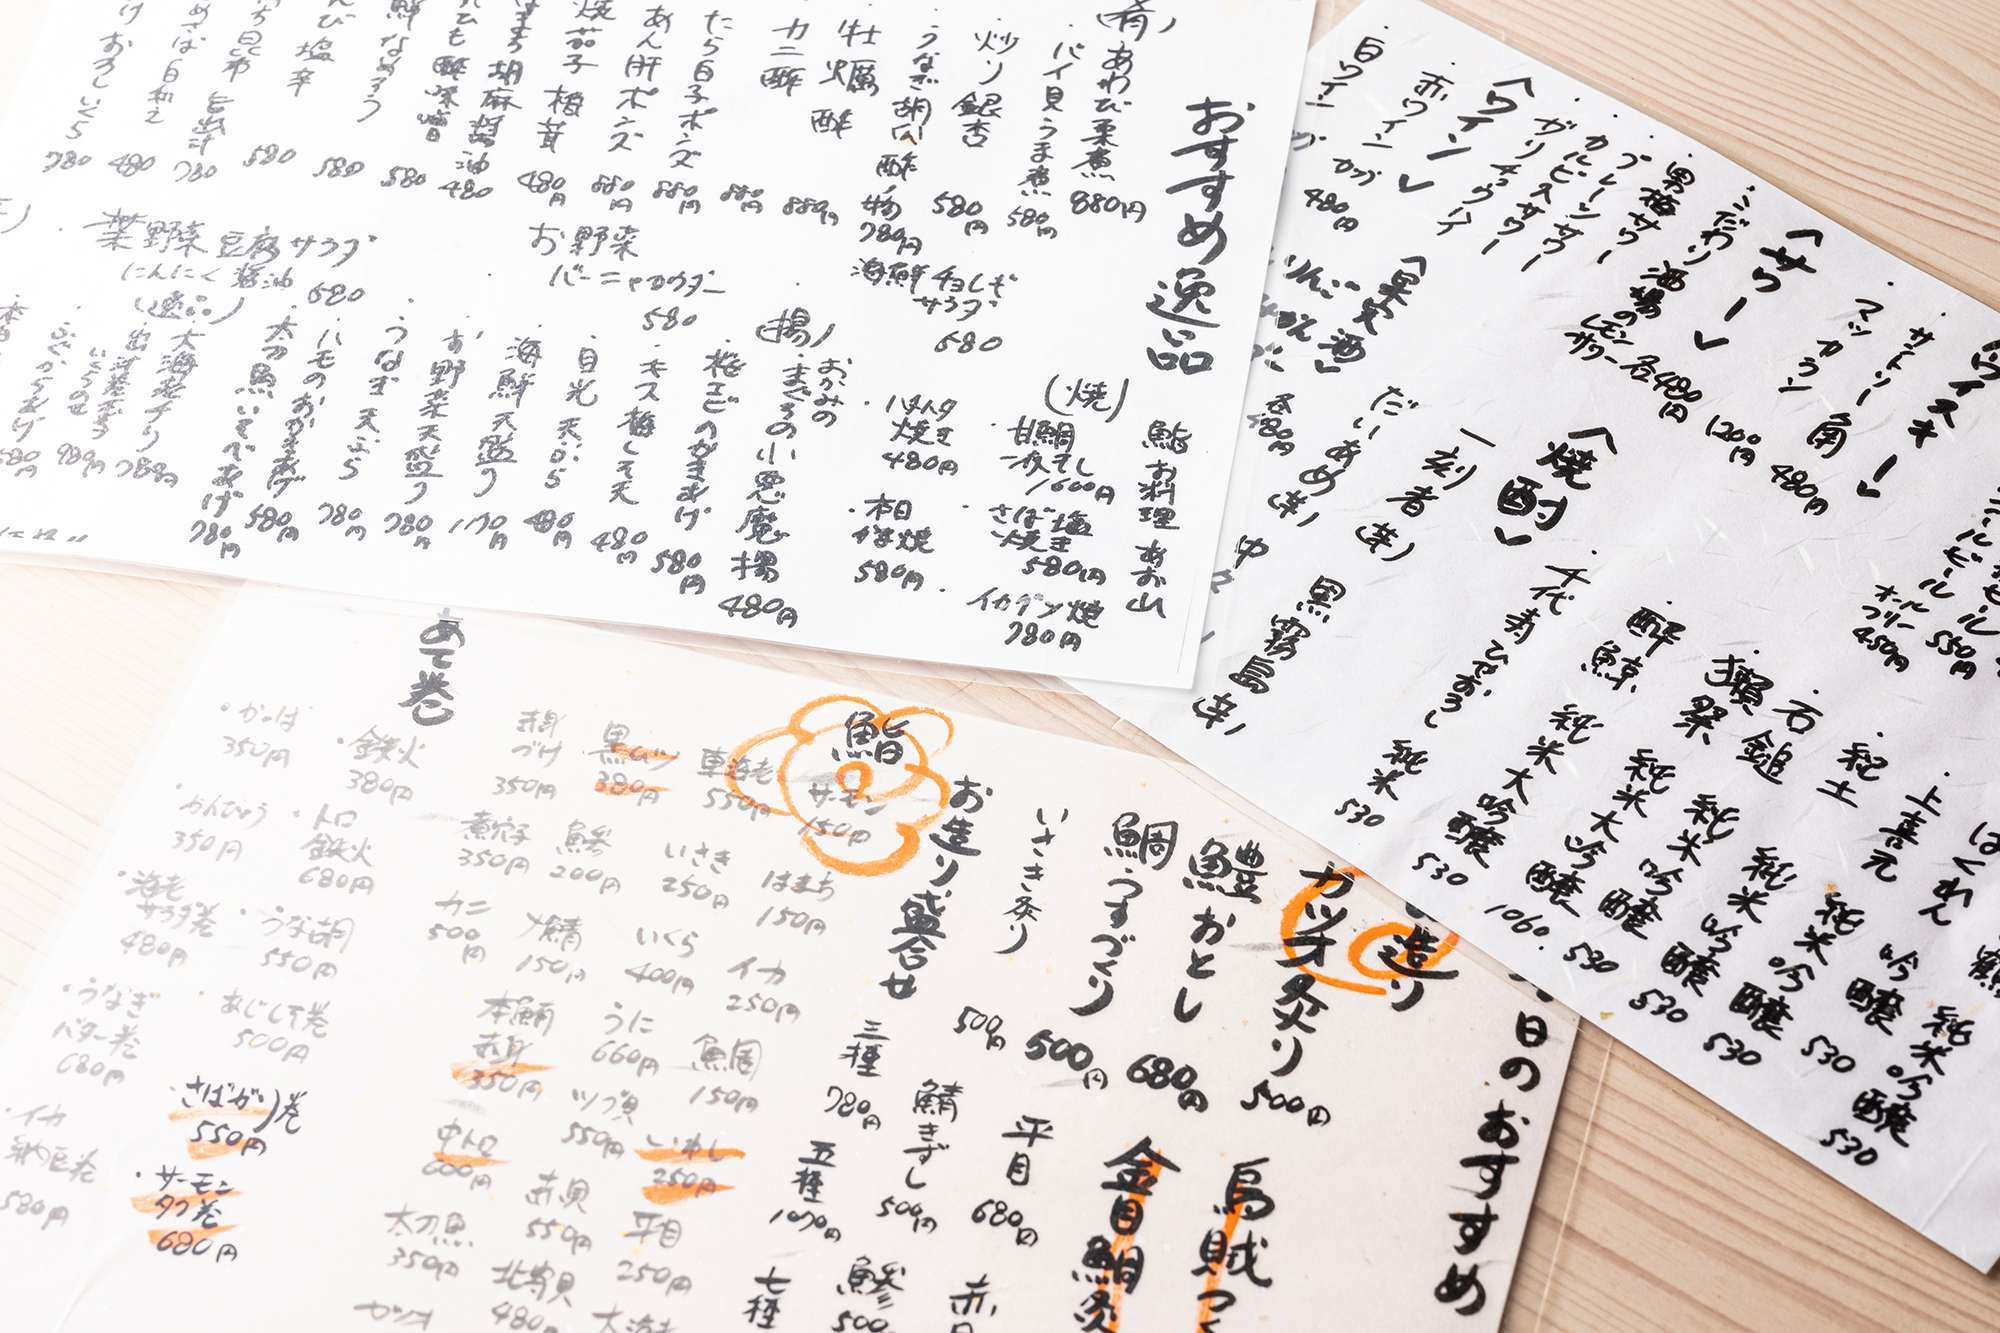 おすすめ逸品
鮨お料理 あお山
(肴)
・あわび柔煮 880円
・バイ貝うま煮 580円
・炒り銀杏 580円
・うなぎ胡瓜酢の物 780円
・牡蠣酢 880円
・カニ酢 880円
・たら白子ポンズ 880円
・あん肝ポンズ 880円
焼茄子 480円
胡麻醤油 480
580
塩辛 580
580
780
白和え 480
おろしいくら 780
海鮮チョレギサラダ 680
お野菜バーニャカウダー 580
葉野菜豆腐サラダ
にんにく醤油 680
(焼)
甘鯛一夜干し 1600円
・さば塩焼き 580円
・イカゲソ焼 780円
・ハタハタ焼き 480円
・本日かま焼 580円
(揚)
おかみの
・まぐろの小悪魔揚 480円
桜エビのかきあげ 580円
・キス梅しそ天 480円
・目光天ぷら 480円
・海鮮天盛り 1170円
・お野菜天盛り 780円
・うなぎ天ぷら 780円
・ハモのおかきあげ 580円
・太刀魚いそべあげ 780円
(逸品)
・大海老チリ 780円
・出汁巻玉子
いくらのせ 980円
580円
<ウイスキー>
・サントリー角 480円
・マッカラン 1200円
オールフリー 450円
550円
<サワー>
・こだわり酒場のレモンサワー 各480円
・男梅サワー
・プレーンサワー
・カルピスサワー
・ガリチュウハイ
<ワイン>
・赤ワイン カップ 480円
・白ワイン カップ
<果実酒>
りんご
みかん
各580円
<焼酎>
一刻者(芋)
だいやめ(芋)
黒霧島(芋)
中々
はくれん 純米吟醸 530
・上喜元 純米吟醸 530
・紀土 純米吟醸 530
・石鎚 純米吟醸 530
・獺祭 純米大吟醸 530
・酔鯨 純米大吟醸 1060.
・千代寿ひやおろし 純米 530
日のおすすめ
お造り
カツオ炙り 500円
鱧おとし 680円
鯛うすづくり 500円
いさき炙り 500円
烏賊つく
金目鯛炙
平目 680円
鯖きずし 500円
鯵 500
赤
お造り盛合せ
三種 780円
五種 1070円
七種
鮨
サーモン 150円
車海老 550円
黒ムツ 380円
づけ 350円
はまち 150円
いさき 250円
鯵 200円
煮穴子 350円
イカ 250円
いくら 400円
〆鯖 150円
カニ 500円
鯛 150円
うに 660円
本鮪赤身 350円
いわし 250円
ツブ貝 550円
中トロ 600円
平目 250円
赤貝 550円
太刀魚 350円
北寄貝 480円
カツオ
あて巻
・鉄火 380円
・かっぱ 350円
・トロ鉄火 680円
・かんぴょう 350円
・うな胡 550円
・海老サラダ巻 480円
・あじしそ巻 500円
・うなぎバター巻 680円
・さばガリ巻 550円
・サーモンタク巻 680円
・イカ納豆巻 580円